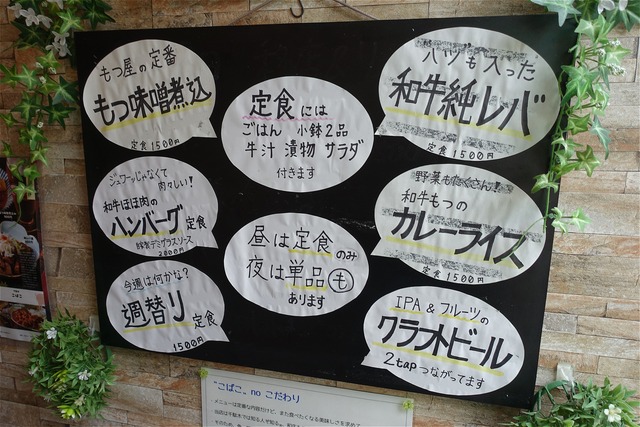 もつ屋の定番
もつ味噌煮込
定食1500円
定食には
ごはん 小鉢2品
牛汁 漬物 サラダ
付きます
ハツも入った
和牛純レバ
定食1500円
ジュワーッじゃなくて
肉々しい!
和牛ほほ肉の
ハンバーグ定食
特製デミグラスソース
2000円
昼は定食のみ
夜は単品も
あります
野菜もたくさん!
和牛もつの
カレーライス
定食1500円
今週は何かな?
週替り定食
1500円
IPA & フルーツの
クラフトビール
2tapつながってます
"こばこ" no こだわり